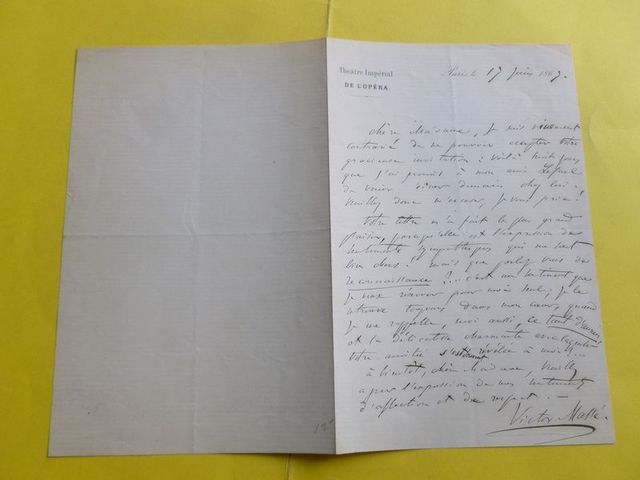 Théâtre Impérial
DE L'OPÉRA.
Paris le 17 Juin 1867.
chère Madame, Je suis vivement
contrarié de ne pouvoir accepter votre
gracieuse invitation : voilà huit jours
que j'ai promis à mon ami
de venir dîner demain chez lui :
veuillez donc m'excuser, je vous prie !
Votre lettre m'a fait le plus grand
plaisir, puisqu'elle est l'expression de
sentiments sympathiques qui me sont
bien chers ! mais que parlez vous de
reconnaissance ? .. c'est un sentiment que
Je veux réserver pour moi seul ; Je le
retrouve toujours dans mon cœur, quand
Je me rappelle, moi aussi,
et la délicatesse charmante avec laquelle
votre amitié s'est révélée à moi !...
à bientôt, chère Madame, veuillez
agréer l'expression de mes sentiments
d'affection et de respect. —
Victor Massé.